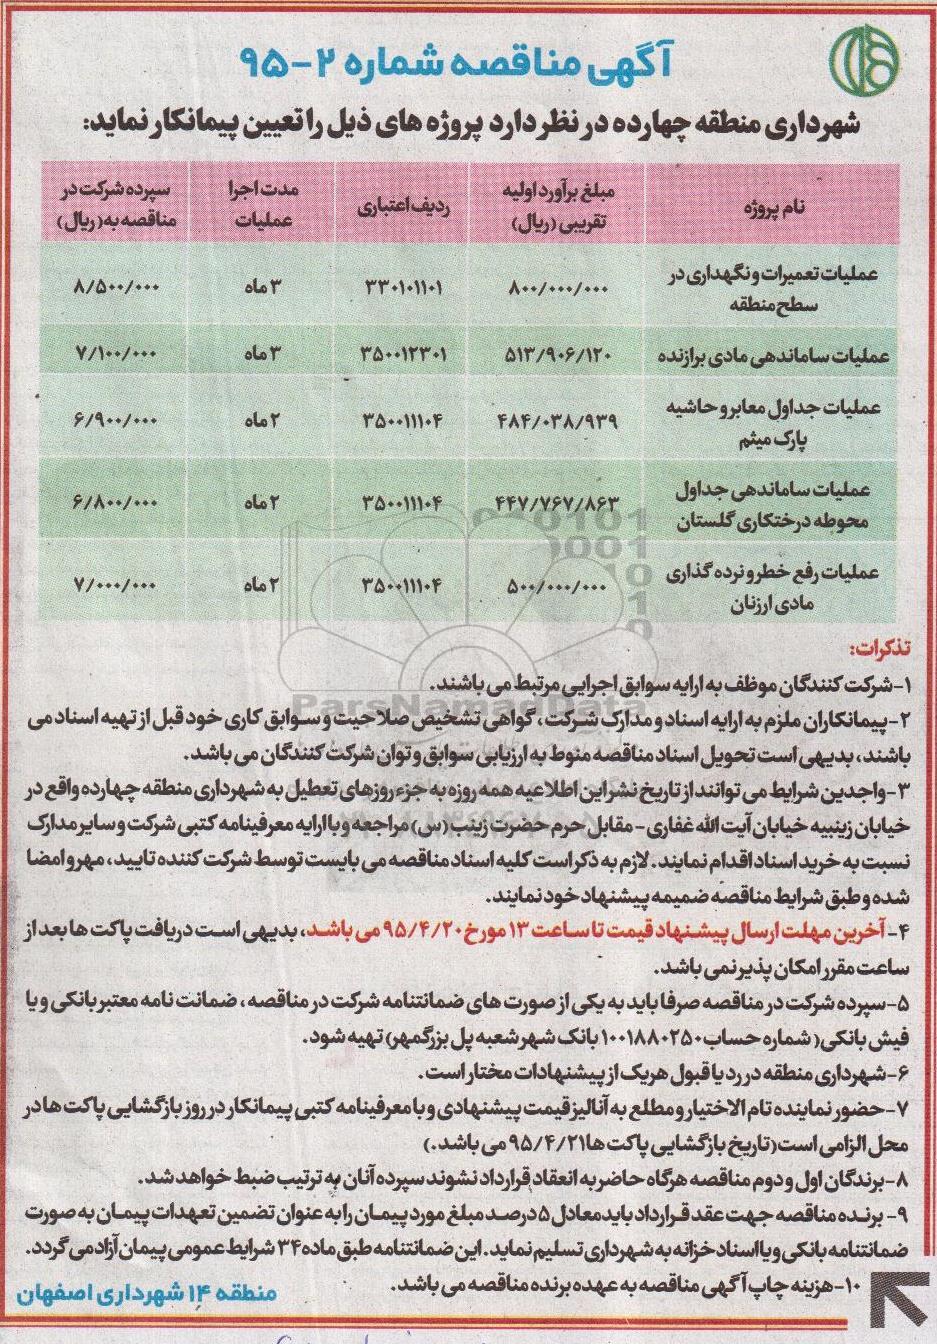 آگهی مناقصه شماره ۲-۹۵
شهرداری منطقه چهارده در نظر دارد پروژه های ذیل را تعیین پیمانکار نماید:
نام پروژه | مبلغ برآورد اولیه تقریبی (ریال) | ردیف اعتباری | مدت اجرا عملیات | سپرده شرکت در مناقصه به( ریال)
عملیات تعمیرات و نگهداری در سطح منطقه | ۸۰۰/۰۰۰/۰۰۰ | ۳۳۰۱۰۱۱۰۱ | ۳ ماه | ۸/۵۰۰/۰۰۰
عملیات ساماندهی مادی برازنده | ۵۱۳/۹۰۶/۱۲۰ | ۳۵۰۰۱۲۳۰۱ | ۳ ماه | ۷/۱۰۰/۰۰۰
عملیات جداول معابر و حاشیه پارک میثم | ۴۸۴/۰۳۸/۹۳۹ | ۳۵۰۰۱۱۱۰۴ | ۲ ماه | ۶/۹۰۰/۰۰۰
عملیات ساماندهی جداول محوطه درختکاری گلستان | ۴۴۷/۷۶۷/۸۶۳ | ۳۵۰۰۱۱۱۰۴ | ۲ ماه | ۶/۸۰۰/۰۰۰
عملیات رفع خطر و نرده گذاری مادی ارزنان | ۵۰۰/۰۰۰/۰۰۰ | ۳۵۰۰۱۱۱۰۴ | ۲ ماه | ۷/۰۰۰/۰۰۰
تذکرات:
۱-شرکت کنندگان موظف به ارایه سوابق اجرایی مرتبط می باشند.
۲-پیمانکاران ملزم به ارایه اسناد و مدارک شرکت، گواهی تشخیص صلاحیت و سوابق کاری خود قبل از تهیه اسناد می
باشند، بدیهی است تحویل اسناد مناقصه منوط به ارزیابی سوابق و توان شرکت کنندگان می باشد.
۳-واجدین شرایط می توانند از تاریخ نشر این اطلاعیه همه روزه به جزء روزهای تعطیل به شهرداری منطقه چهارده واقع در
خیابان زینبیه خیابان آیت الله غفاری- مقابل حرم حضرت زینب(س) مراجعه و با ارایه معرفینامه کتبی شرکت و سایر مدارک
نسبت به خرید اسناد اقدام نمایند. لازم به ذکر است کلیه اسناد مناقصه می بایست توسط شرکت کننده تایید، مهر و امضا
شده و طبق شرایط مناقصه ضمیمه پیشنهاد خود نمایند.
۴-آخرین مهلت ارسال پیشنهاد قیمت تا ساعت ۱۳ مورخ ۹۵/۴/۲۰ می باشد، بدیهی است دریافت پاکت ها بعد از
ساعت مقرر امکان پذیر نمی باشد.
۵-سپرده شرکت در مناقصه صرفا باید به یکی از صورت های ضمانتنامه شرکت در مناقصه، ضمانت نامه معتبر بانکی و یا
فیش بانکی( شماره حساب ۱۰۰۱۸۸۰۲۵۰ بانک شهر شعبه پل بزرگمهر) تهیه شود.
۶-شهرداری منطقه در رد یا قبول هر یک از پیشنهادات مختار است.
۷-حضور نماینده تام الاختیار و مطلع به آنالیز قیمت پیشنهادی و با معرفینامه کتبی پیمانکار در روز بازگشایی پاکت ها در
محل الزامی است(تاریخ بازگشایی پاکت ها ۹۵/۴/۲۱ می باشد.)
۸-برندگان اول و دوم مناقصه هرگاه حاضر به انعقاد قرارداد نشوند سپرده آنان به ترتیب ضبط خواهد شد.
۹- برنده مناقصه جهت عقد قرارداد باید معادل ۵ درصد مبلغ مورد پیمان را به عنوان تضمین تعهدات پیمان به صورت
ضمانتنامه بانکی و یا اسناد خزانه به شهرداری تسلیم نماید. این ضمانتنامه طبق ماده ۳۴ شرایط عمومی پیمان آزاد می گردد.
۱۰-هزینه چاپ آگهی مناقصه به عهده برنده مناقصه می باشد.
منطقه ۱۴ شهرداری اصفهان
ParsNamadData